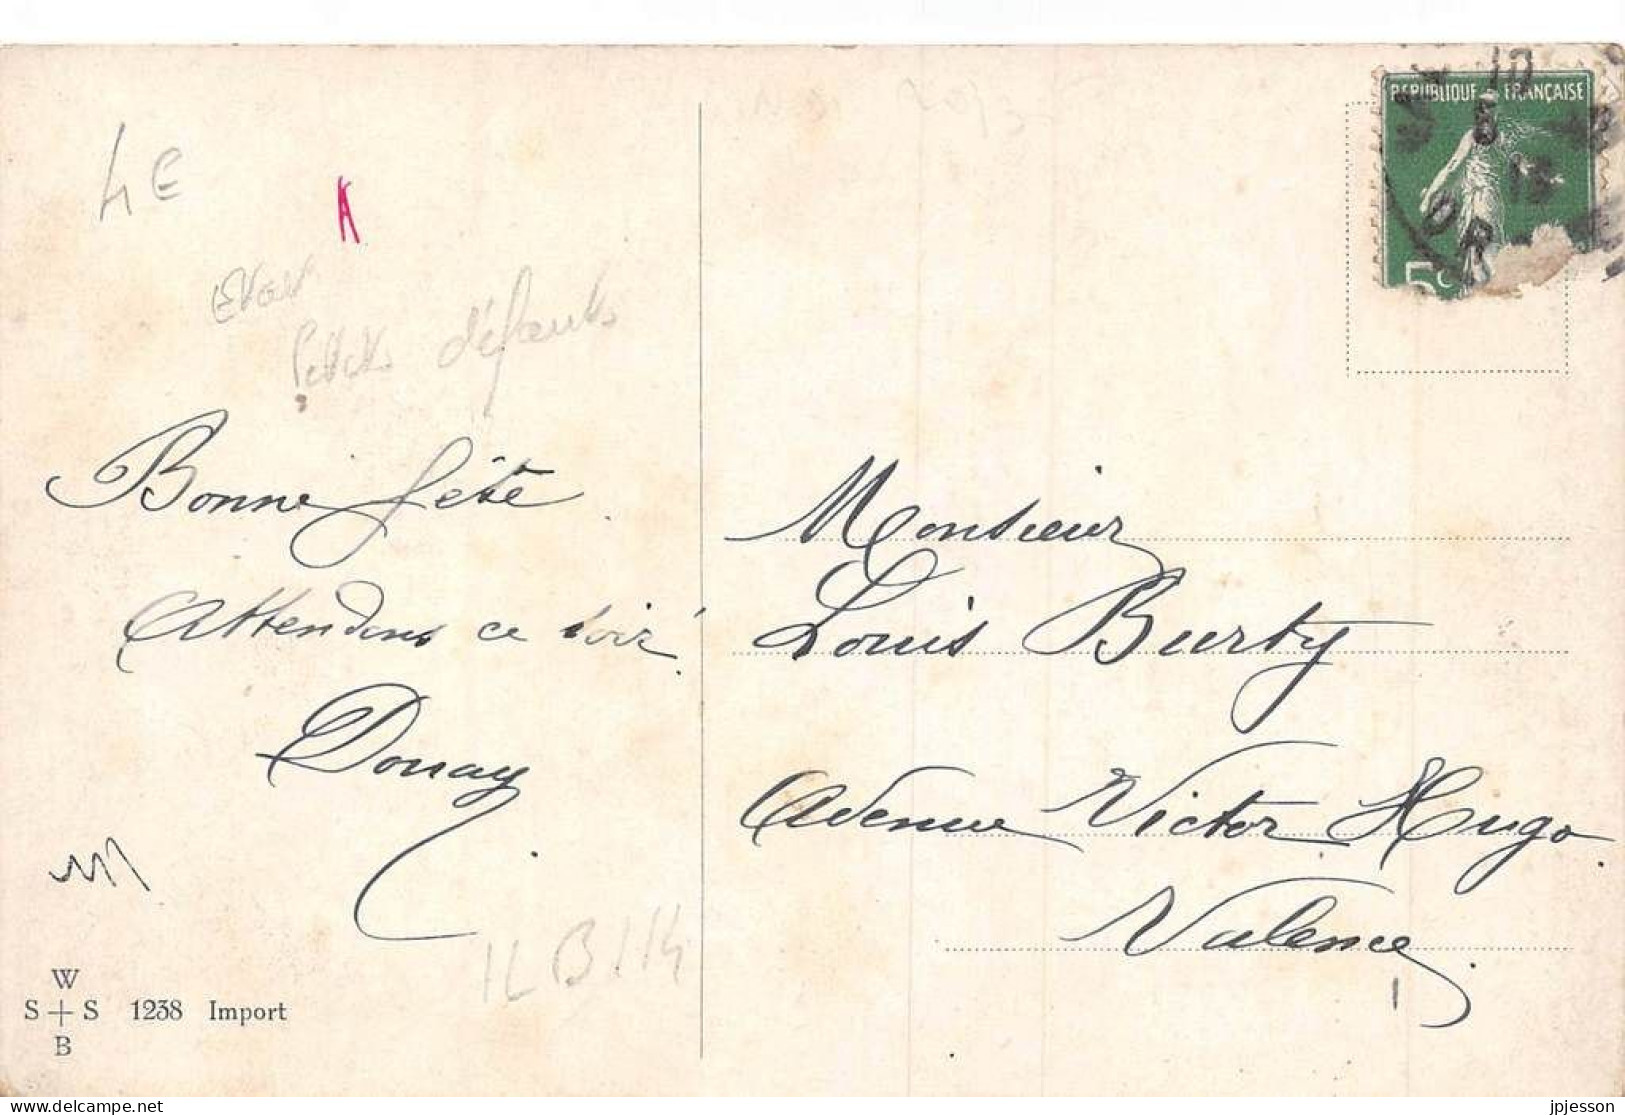 4E
petits défauts
Bonne fête
Attendons ce soir!
Donay
W
S + S 1238 Import
B
REPUBLIQUE FRANÇAISE
10
5
5c
Monsieur
Louis Burty
Avenue Victor Hugo.
Valence
delcampe.net
jpjesson